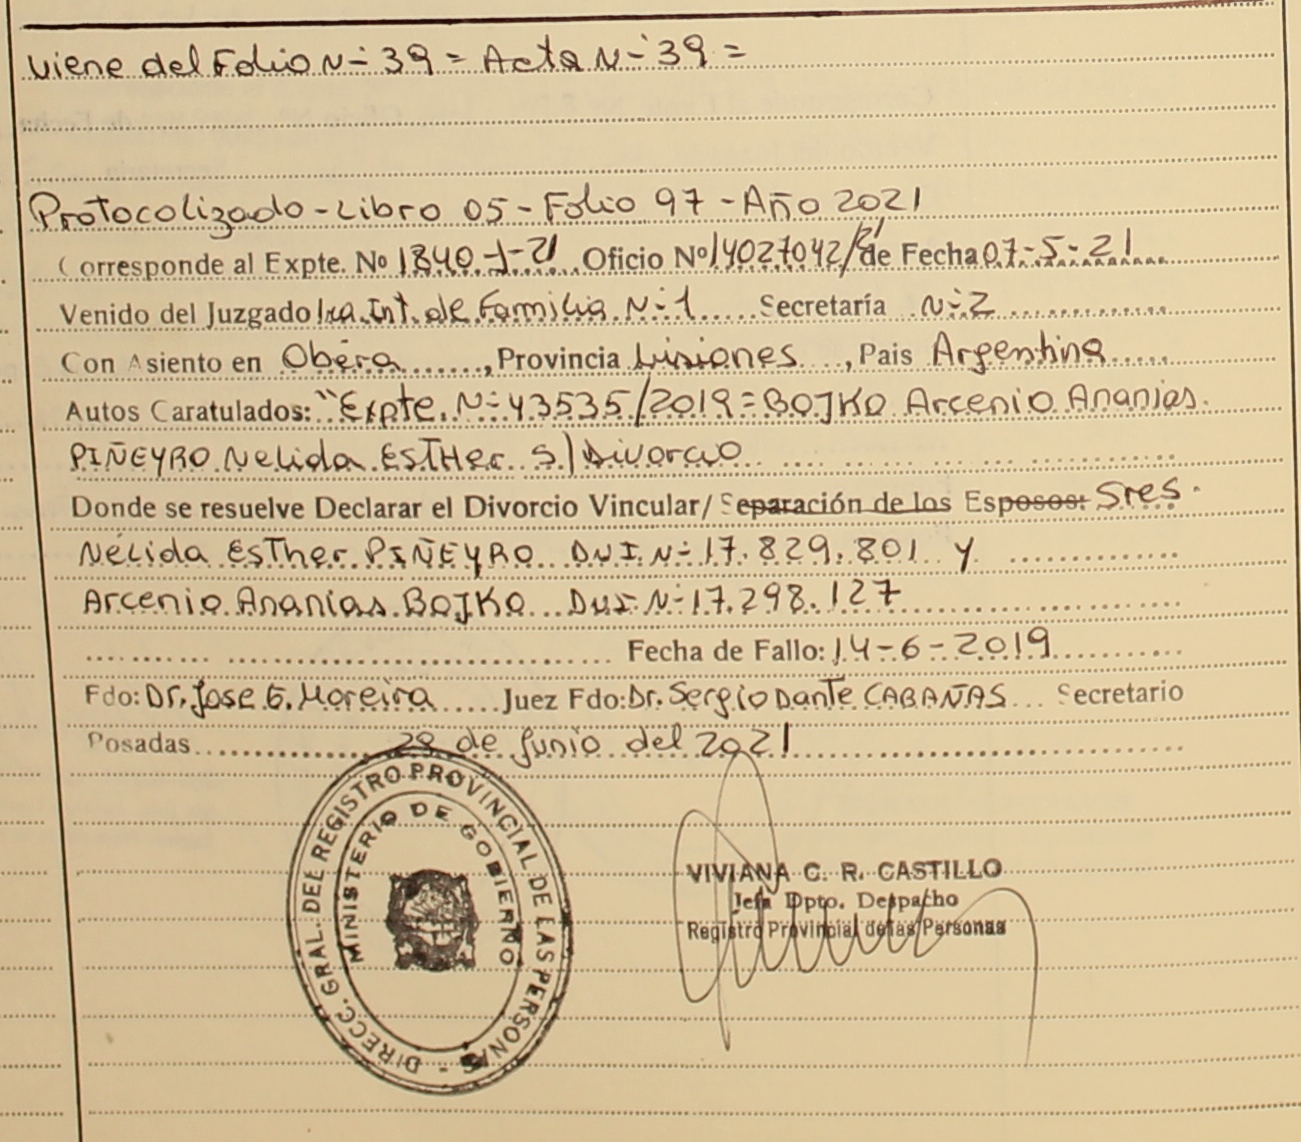 Viene del Folio N- 39 = Acta N- 39 =
Protocolizado - Libro 05 - Folio 97 - Año 2021
Corresponde al Expte. Nº 1840-J-21 Oficio Nº 14027042/21 de Fecha 07-5-21
Venido del Juzgado 1ra. Int. de Familia N-1 Secretaría N-2
Con Asiento en Oberá, Provincia Misiones, Pais Argentina
Autos Caratulados: "Expte. N- 43535/2019 = BOJKO Arcenio Ananias.
PIÑEYRO Nelida Esther S/ Divorcio
Donde se resuelve Declarar el Divorcio Vincular/ Separación de los Esposos: Sres.
Nélida Esther PIÑEYRO D.N.I. N- 17.829.801 y
Arcenio Ananias BOJKO DNI N- 17.298.127
Fecha de Fallo: 14-6-2019
Fdo: Dr. Jose G. Moreira Juez Fdo: Dr. Sergio Dante CABAÑAS Secretario
Posadas 28 de Junio del 2021
DIRECC. GRAL. DEL REGISTRO PROVINCIAL DE LAS PERSONAS -
MINISTERIO DE GOBIERNO
VIVIANA C. R. CASTILLO
Jefa Dpto. Despacho
Registro Provincial de las Personas